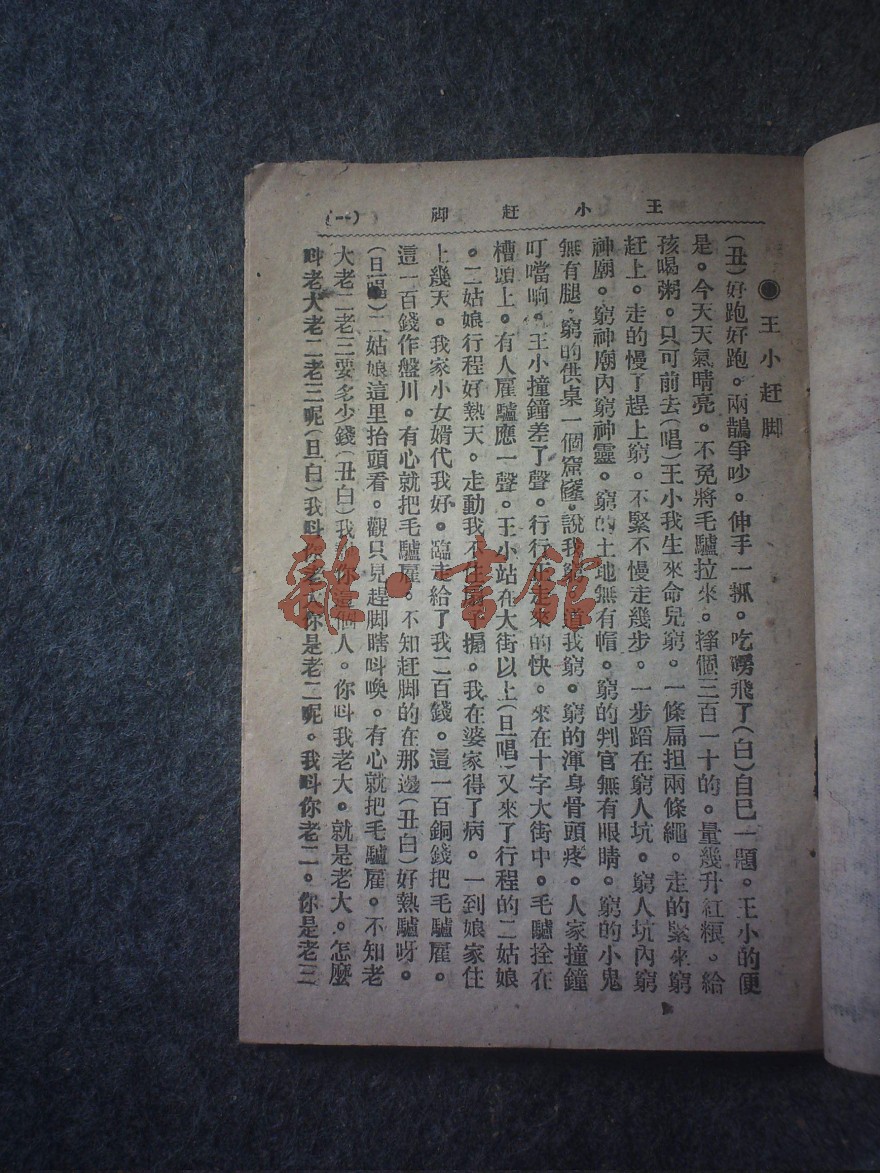 王小赶脚 (一)
●王小赶脚
(丑)好跑好跑。兩鵲爭吵。伸手一抓。吃喨飛了(白)自己一題。王小的便
是。今天天氣晴亮。不免將毛驢拉來。掙個三百一十的。量幾升紅粮。給
孩喝粥。只可前去(唱)王小我生來命兒窮。一條扁担兩條繩。走的緊來窮
赶上。走的慢了趕上窮。不緊不慢走幾步。一步蹈在窮人坑。窮人坑內窮
神廟。窮神廟內窮神靈。窮的土地無有帽。窮的判官無有眼睛。窮的小鬼
無有腿。窮的供桌一個窟窿。說我窮道我窮。窮的渾身骨頭疼。人家撞鐘
叮噹响。王小撞鐘差了聲。行行正走來的快。來在十字大街中。毛驢拴在
槽頭上。有人雇驢應一聲。王小站在大街以上(旦唱)又來了行程的二姑娘
。二姑娘行程好熱天。走動我不住扇子搧。我在婆家得了病。一到娘家住
上幾天。我家小女婿代我好。臨走給了我二百錢。這一百銅錢把毛驢雇。
這一百錢作盤川。有心就把毛驢雇。不知赶脚的在那邊(丑白)好熱驢呀。
(旦唱)二姑娘這里抬頭看。觀只見趕脚瞎呌喚。有心就把毛驢雇。不知老
大老二老三要多少錢(丑白)我 你這個人。你呌我老大。就是老大。怎麼
呌老大老二老三呢(旦白)我呌你老大你是老二呢。我呌你老二。你是老三
雜·書館